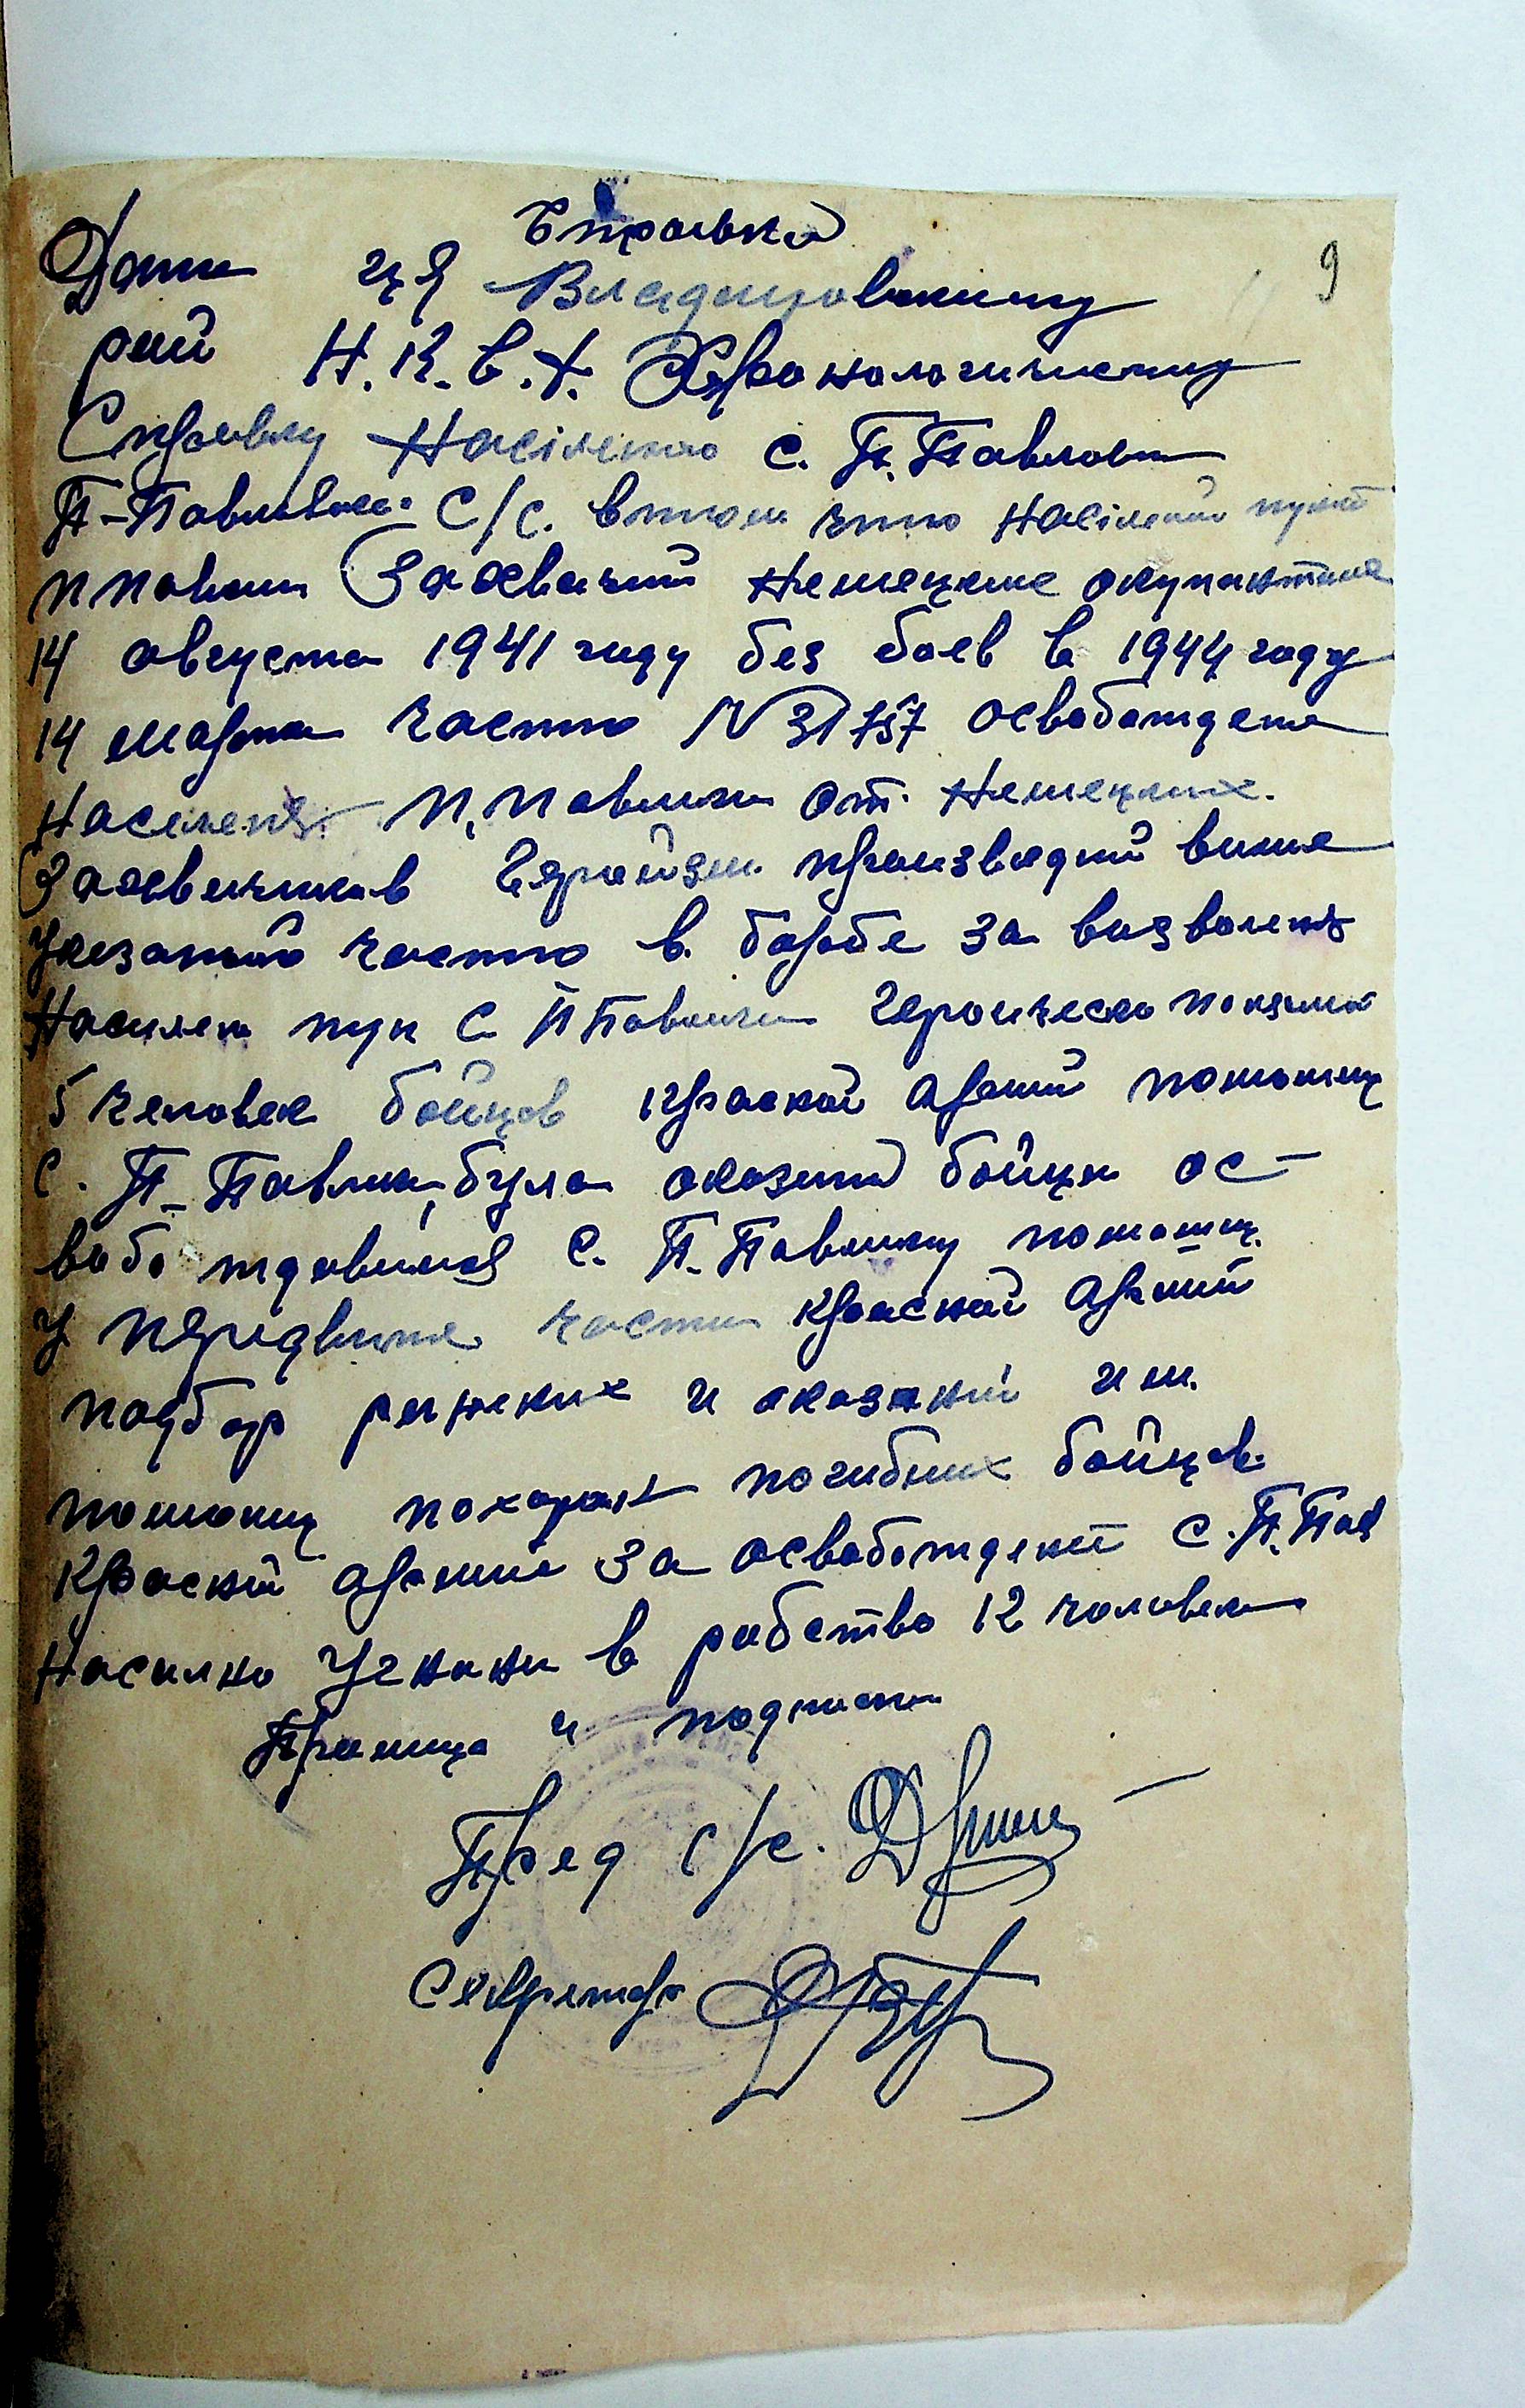 Справка
9
Дана ця Владимировскому
рай Н.К.В.Д. Хронологическую
Справку Насіленю с. П. Павловки
П-Павловке С/с. в том что насілений пункт
п павлки Захвачий немецкие окупантами
14 августа 1941 году без боев в 1944 году
14 марта частю N 31757 освобождена
населеня п. павлики от немецких.
Захвачиков Геройзм произведний више
указаной частю в. борбе за визволеня
Насилен пун с П Павлики героически покали
5 человек бойцов красной армий помощи
с. П-Павлики, була оказана бойци ос-
вобо ждавшия с. П-Павлику помощ.
у передвиже части красной армий
подбор раненых и оказаний им.
помощи похорон погибших бойцов.
Красний армие за освобождений с. П. Пав
Насилно угнани в рабство 12 человек
и подписи
Пред с/с.
Секретарь